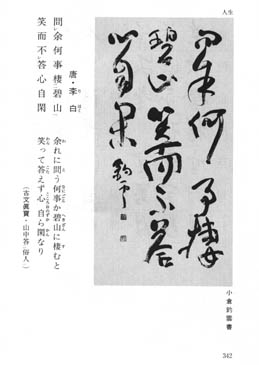 人生
問余何事棲
碧山笑而不答
心自閑 釣雲
小倉釣雲書
唐・李白
問余何事棲碧山
笑而不答心自閑
余れに問う何事か碧山に棲むと
笑って答えず心自ら閑なり
（古文眞寶・山中答俗人）
342